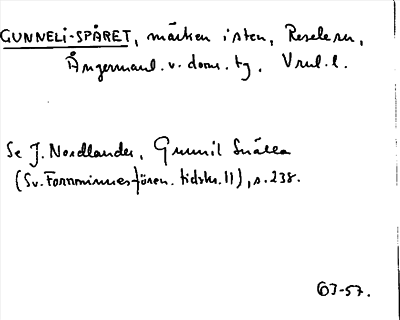 GUNNELI-SPÅRET, märken i sten, Resele sn,
Ångermanl. v. doms. tg. Vnul. l.
Se J. Nordlander, Gunnil Snälla
(Sv. Fornminnesfören. tidskr. 11), s. 238.
63-57.